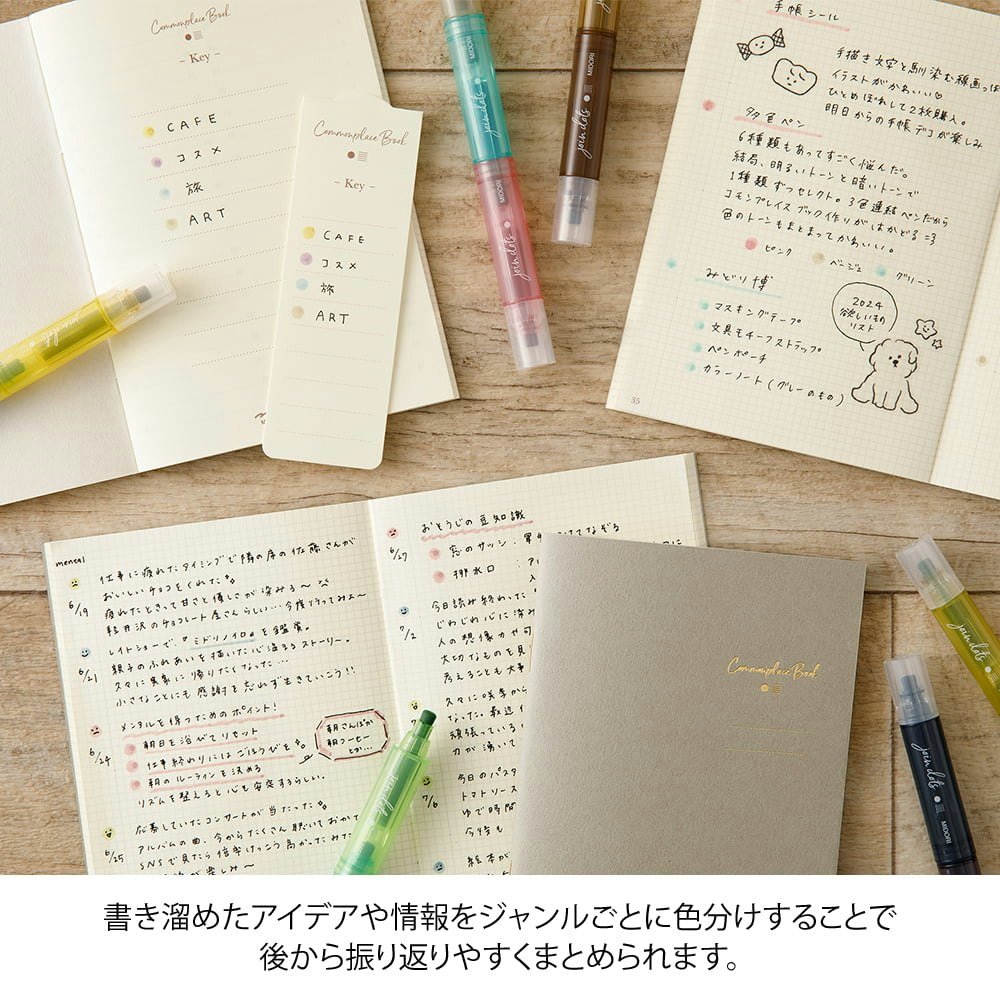 Commonplace Book
- Key -
CAFE
コスメ
旅
ART
Commonplace Book
- Key -
CAFE
コスメ
旅
ART
join dots
MIDORI
join dots
MIDORI
join dots
MIDORI
join dots
手帳シール
手描き文字と馴染む線画っぽ
イラストがかわいい♡
ひとめぼれして2枚購入。
明日からの手帳デコが楽しみ
多色ペン
6種類もあってすごく悩んだ。
結局、明るいトーンと暗いトーンで
1種類ずつセレクト。3色連結ペンだから
コモンプレイスブック作りがはかどる =3
色のトーンもまとまってかわいい。
ピンク
ベージュ
グリーン
みどり博
マスキングテープ
文具モチーフストラップ
ペンポーチ
カラーノート(グレーのもの)
2024
欲しいもの
リスト
35
mental
6/19
仕事に疲れたタイミングで隣の席の佐藤さんが
おいしいチョコをくれた
疲れたときって甘さと優しさが染みる〜
軽井沢のチョコレート屋さんらしい…今度行ってみよ〜
6/21
レイトショーで、『ミドリノイロ』を鑑賞。
親子のふれあいを描いた心温まるストーリー。
久々に実家に帰りたくなった…
小さなことにも感謝を忘れず生きていこう!!
6/24
メンタルを保つためのポイント!
朝日を浴びてリセット
仕事終わりにはごほうびを
朝のルーティンを決める
リズムを整えると心も安定するらしい。
朝さんぽか
朝コーヒー
とか…
6/25
応募していたコンサートが当たった
アルバムの曲、今からたくさん聴いておかな
SNSで見たら倍率けっこう高かったみた
が楽しみ〜
6/27
おそうじの豆知識
窓のサッシ:
でなぞる
排水口:
7/2
今日読み終わった
じわじわ心に染み
人の想像力や
大切なものを見
考えることも大事
久々に
なった。最近
頑張っている
力が湧いて
7/6
今日のパスタ
トマトソース
ゆで時間
今時も
絵本が
Commonplace Book
join dots
join dots
MIDORI
書き溜めたアイデアや情報をジャンルごとに色分けすることで
後から振り返りやすくまとめられます。